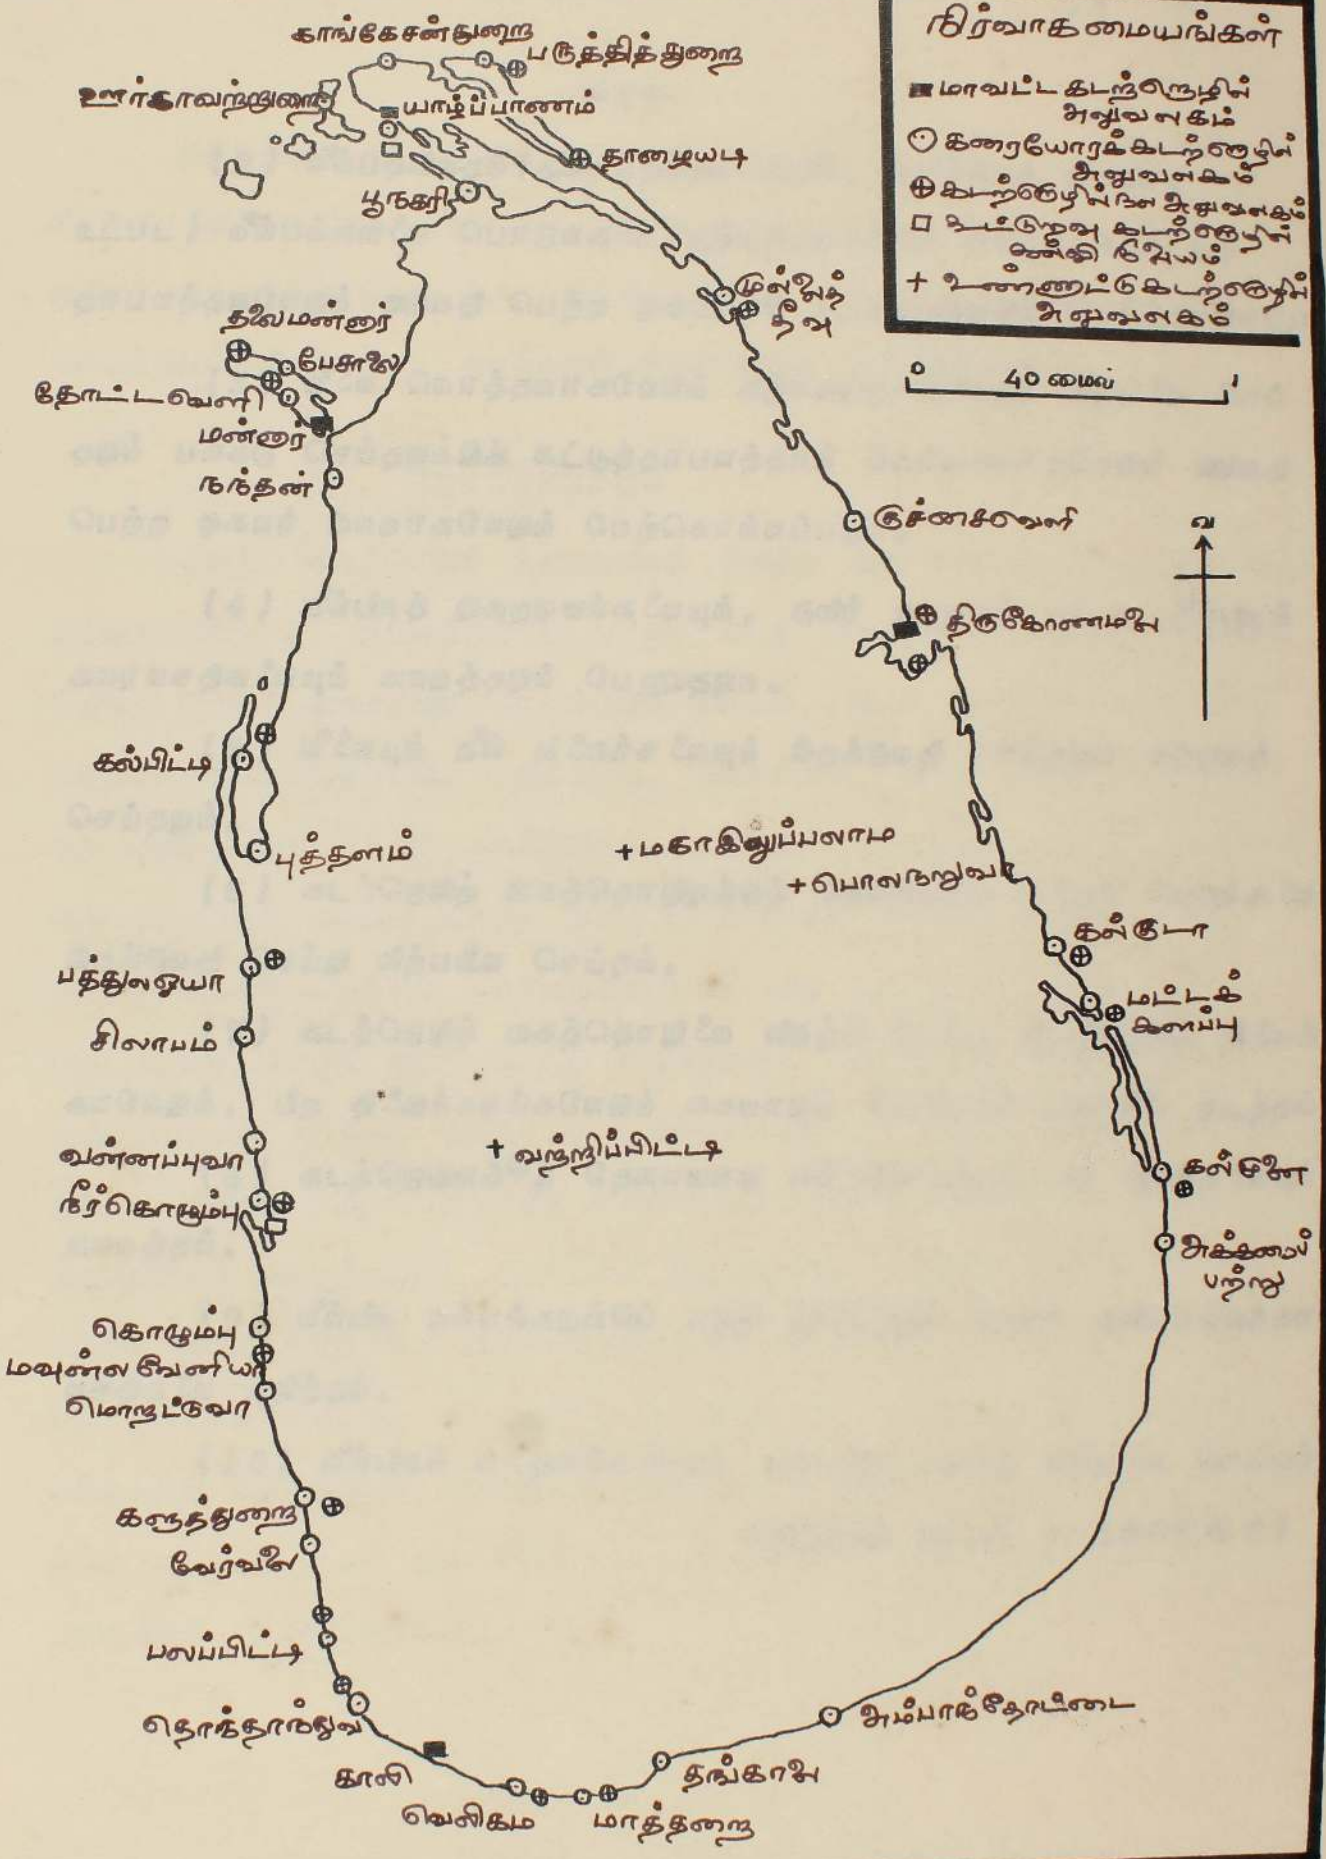 நிர்வாக மையங்கள்
மாவட்ட கடற்றொழில்
அலுவலகம்
கரையோரக்கடற்றொழில்
அலுவலகம்
கடற்றொழில் நல அலுவலகம்
கூட்டுறவு கடற்றொழில்
கல்வி நிலையம்
+ உண்ணாட்டு கடற்றொழில்
அலுவலகம்
0 40 மைல்
வ
காங்கேசன்துறை
பருத்தித்துறை
ஊர்காவற்றுறை
யாழ்ப்பாணம்
தாழையடி
பூநகரி
முல்லைத்
தீவு
தலைமன்னார்
பேசாலை
தோட்டவெளி
மன்னார்
நந்தன்
குச்சைவெளி
திருகோணமலை
கல்பிட்டி
புத்தளம்
+ மகாஇலுப்பலாம
+ பொலநறுவா
கல்குடா
பத்துலஓயா
மட்டக்
களப்பு
சிலாபம்
+ வற்றிப்பிட்டி
வன்னப்புவா
கல்முனை
நீர்கொழும்பு
அக்கரைப்
பற்று
கொழும்பு
மவுன்லவேனியா
மொறட்டுவா
களுத்துறை
வேர்வலை
பலப்பிட்டி
தொந்தாந்துவ
அம்பாந்தோட்டை
காலி
தங்காலை
வெலிகம
மாத்தறை